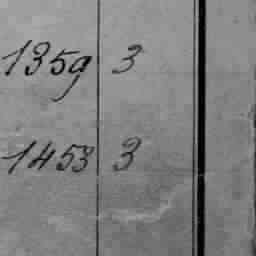 1359 3
1453 3